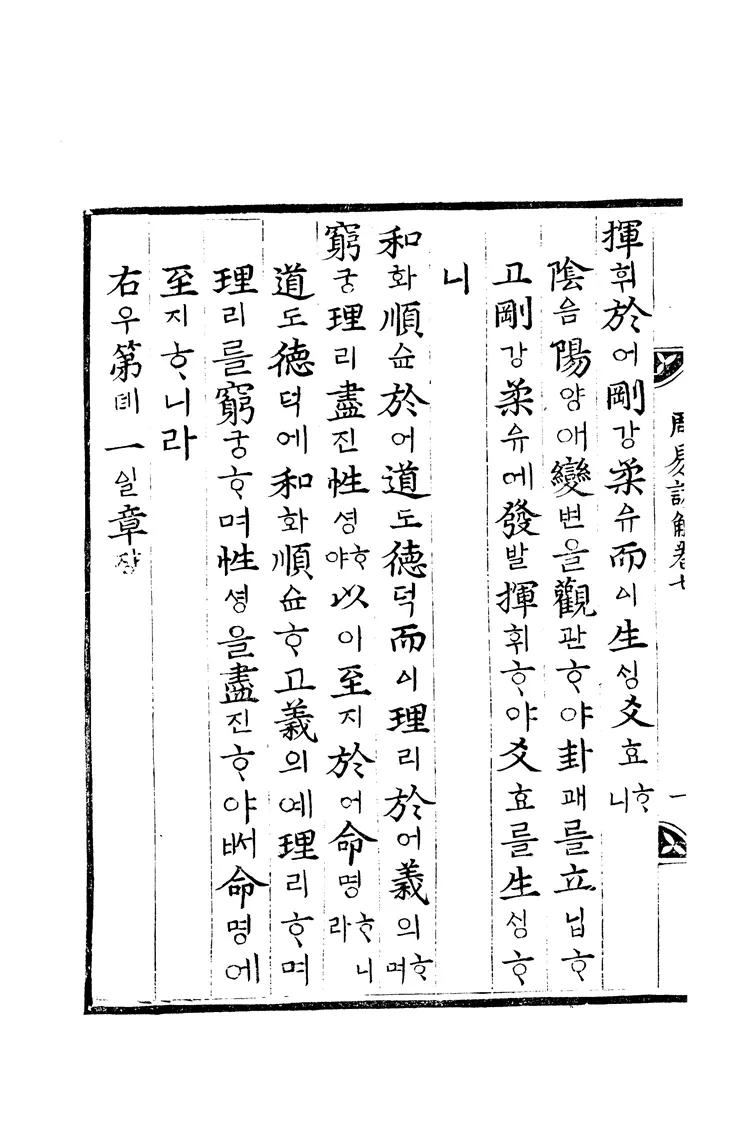 周易諺解卷七 一
揮휘於어剛강柔유而ᅀᅵ生ᄉᆡᆼ爻효ᄒᆞ니
陰음陽양애變변을觀관ᄒᆞ야卦괘를立닙ᄒᆞ
고剛강柔유에發발揮휘ᄒᆞ야爻효를生ᄉᆡᆼᄒᆞ
니
和화順슌於어道도德덕而ᅀᅵ理리於어義의ᄒᆞ며
窮궁理리盡진性셩ᄒᆞ야以이至지於어命명ᄒᆞ니라
道도德덕에和화順슌ᄒᆞ고義의예理리ᄒᆞ며
理리를窮궁ᄒᆞ며性셩을盡진ᄒᆞ야ᄡᅥ命명에
至지ᄒᆞ니라
右우第뎨一일章쟝